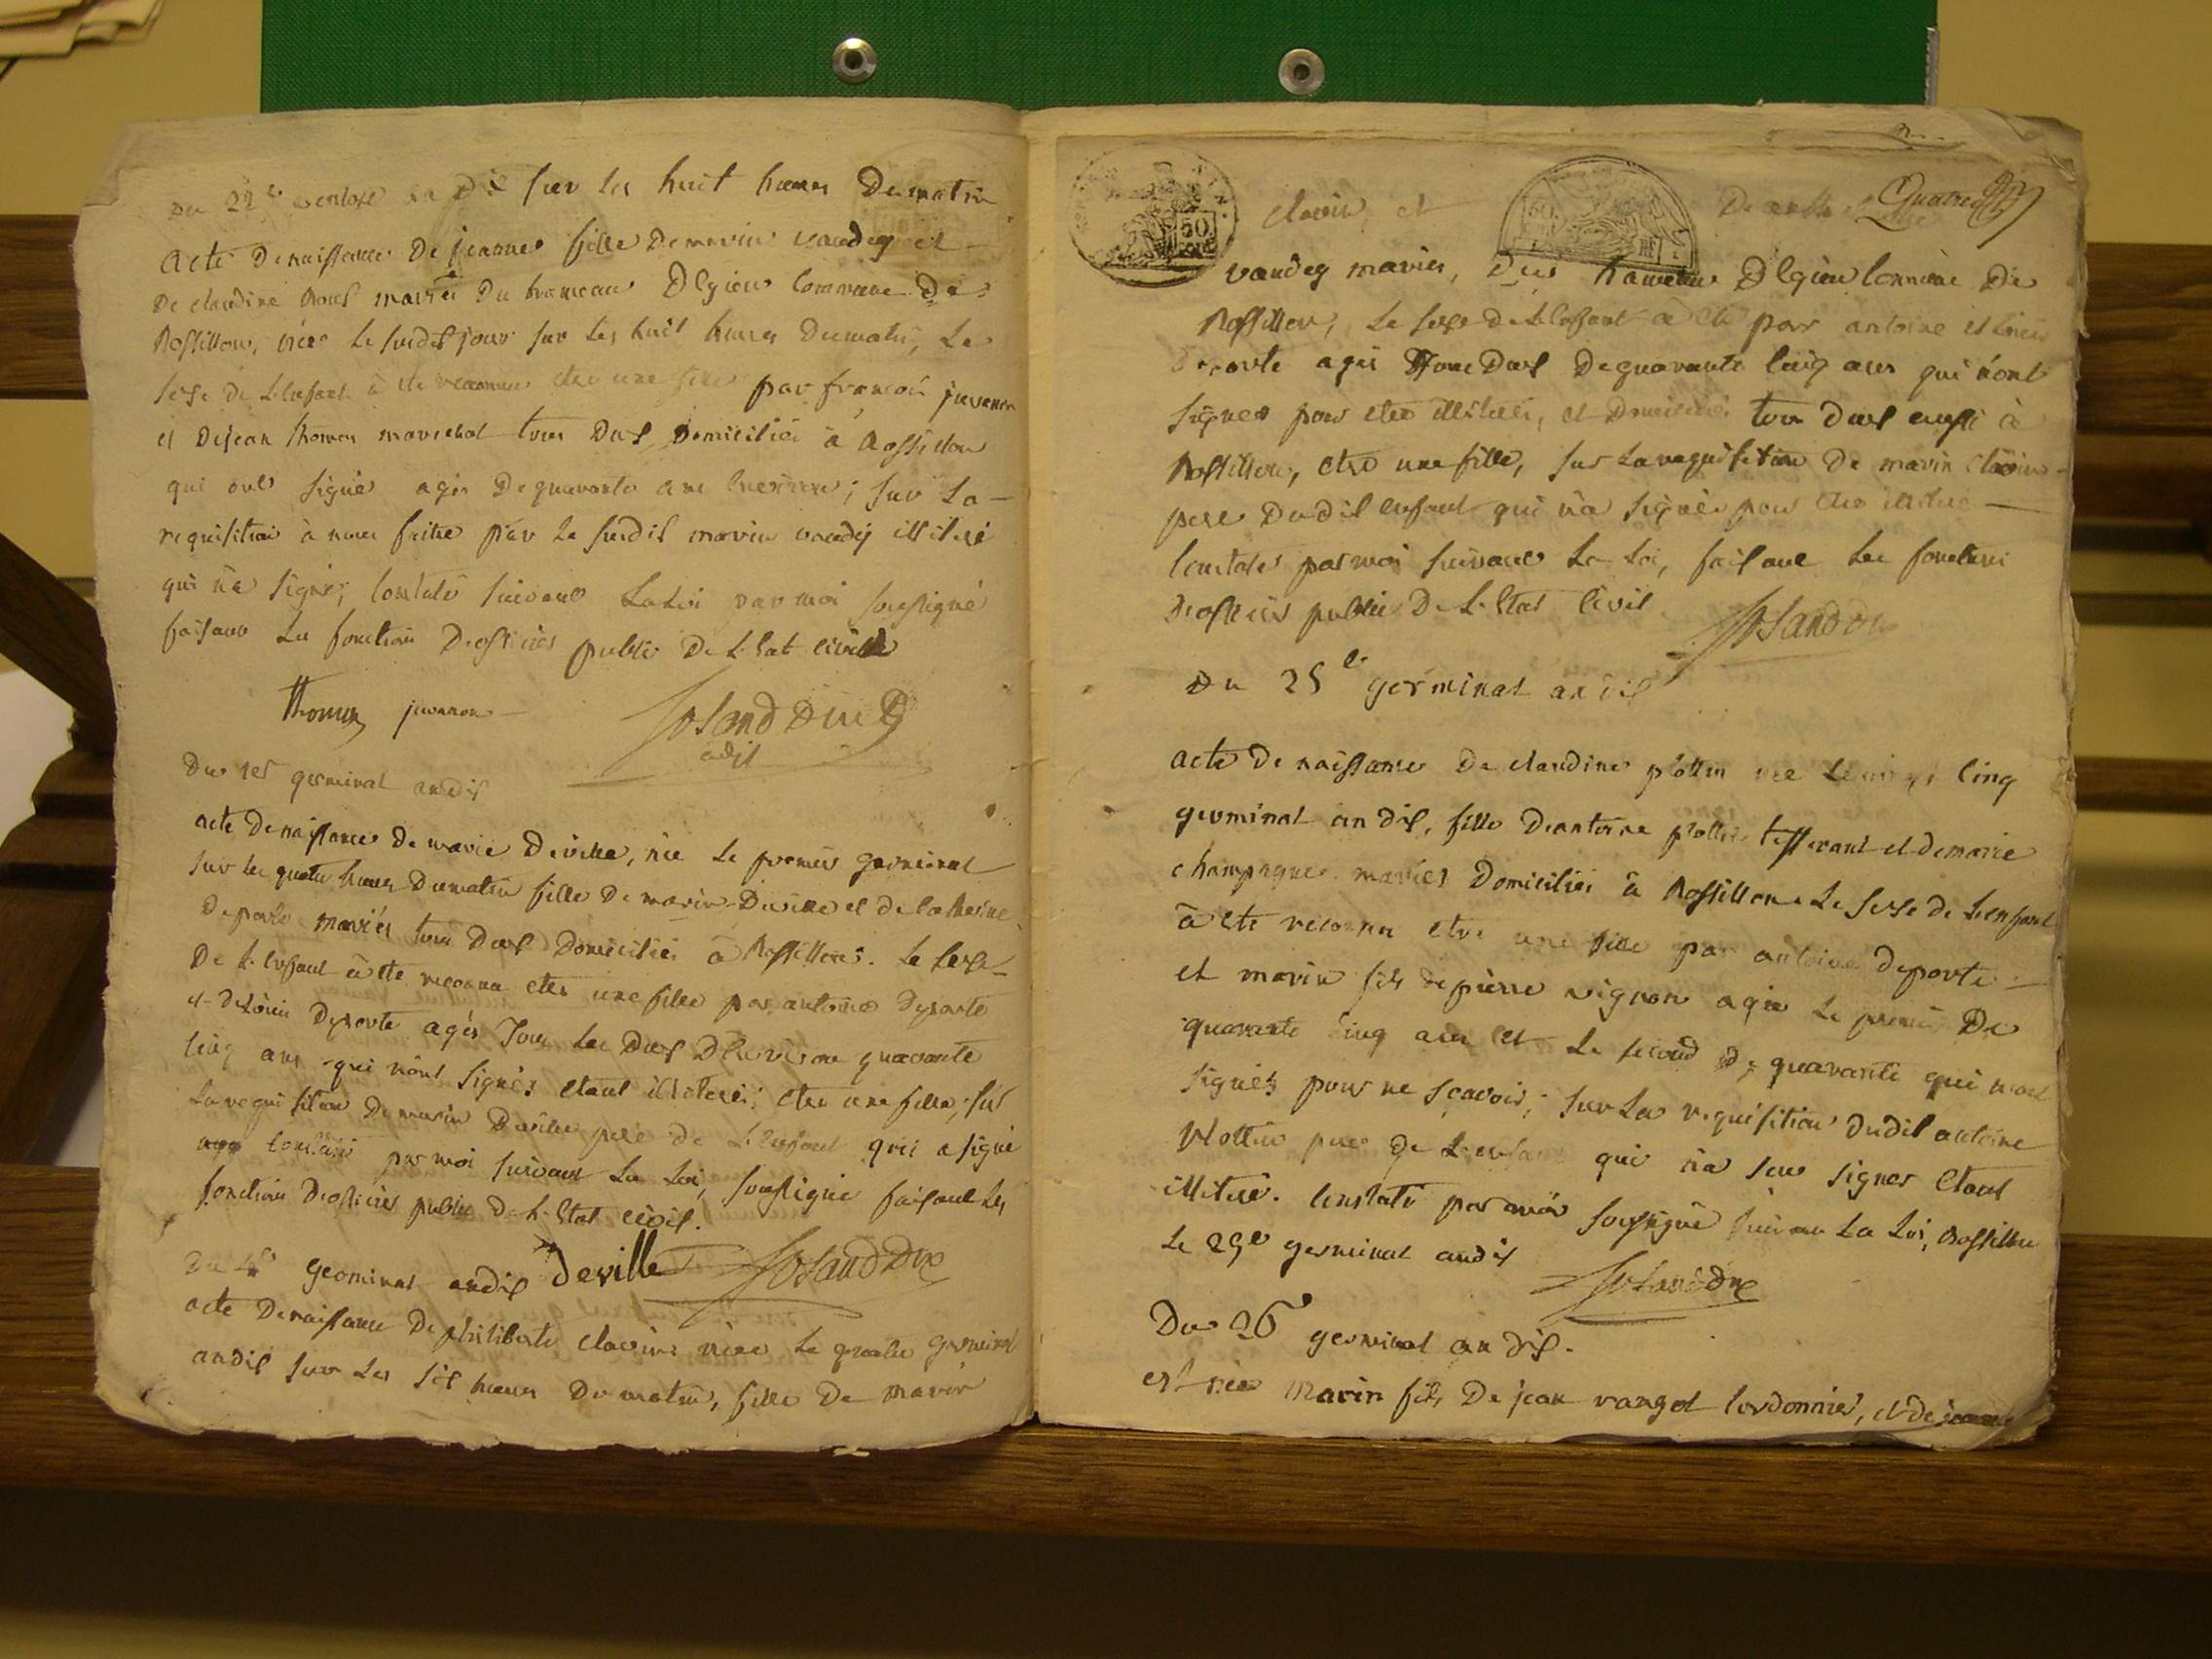 du 22e ventose an dix sur les huit heures du matin
acte de naissance de jeanne fille de marin vaudey et
de claudine mariés du hameau d'Egieu commune de
Rossillon, née le susdit jour sur les huit heures du matin, Le
sexe de L'enfant à été reconnu etre une fille par francois juvanon
et de jean thomas marechal tous deux domiciliés à Rossillon
qui ont signé agés de quarante ans environ; sur La
requisition à nous faitte par Le susdit marin vaudey illitéré
qui n'a signé; constaté suivant La Loi par moi soussigné
faisant Les fonctions d'officier public de L'Etat civil
thomas juvanon
adjt
Du 1er germinal an dix
acte de naissance de marie deville, née Le premier germinal
sur les quatre heures du matin fille de marin Deville et de Catherine
deporte mariés tous deux domiciliés à Rossillon. Le sexe
de L'enfant à été reconnu etre une fille par antoine deporte
et de deporte agés tous Les deux d'environ quarante
cinq ans qui n'ont signés etant illiterés; etre une fille, sur
La requisition de marin Deville pere de L'enfant qui a signé
constaté par moi suivant La Loi, soussigné faisant Les
fonctions d'officier public de L'Etat civil.
Du 4e germinal an dix deville
acte de naissance de philiberte clavin née Le quatre germinal
an dix sur Les six heures du matin, fille de marin
clavin et de Quatre
vaudey mariés, du hameau d'Egieu commune de
Rossillon, Le sexe de L'enfant à été par antoine et
deporte agés tous deux de quarante cinq ans qui n'ont
signés pour etre illiterés, et domiciliés tous deux aussi à
Rossillon, etre une fille, sur La requisition de marin clavin
pere dudit enfant qui n'a signé pour etre illiteré
constaté par moi suivant La Loi, faisant Les fonctions
d'officier public de L'Etat civil
Du 25e germinal an dix
acte de naissance de claudine plottin née Le vingt cinq
germinal an dix, fille d'antoine plottin tisserant et de marie
champagne mariés domiciliés à Rossillon Le sexe de L'enfant
à été reconnu etre une fille par antoine deporte
et marin fils de pierre vignon agés Le premier de
quarante cinq ans et Le second de quarante qui n'ont
signés pour ne sçavoir; sur La requisition dudit antoine
plottin pere de L'enfant qui n'a sceu signer etant
illiteré. constaté par moi soussigné suivant La Loi, Rossillon
Le 25e germinal an dix
Du 26 germinal an dix.
est née marin fils de jean vangel cordonnier, et de jeanne